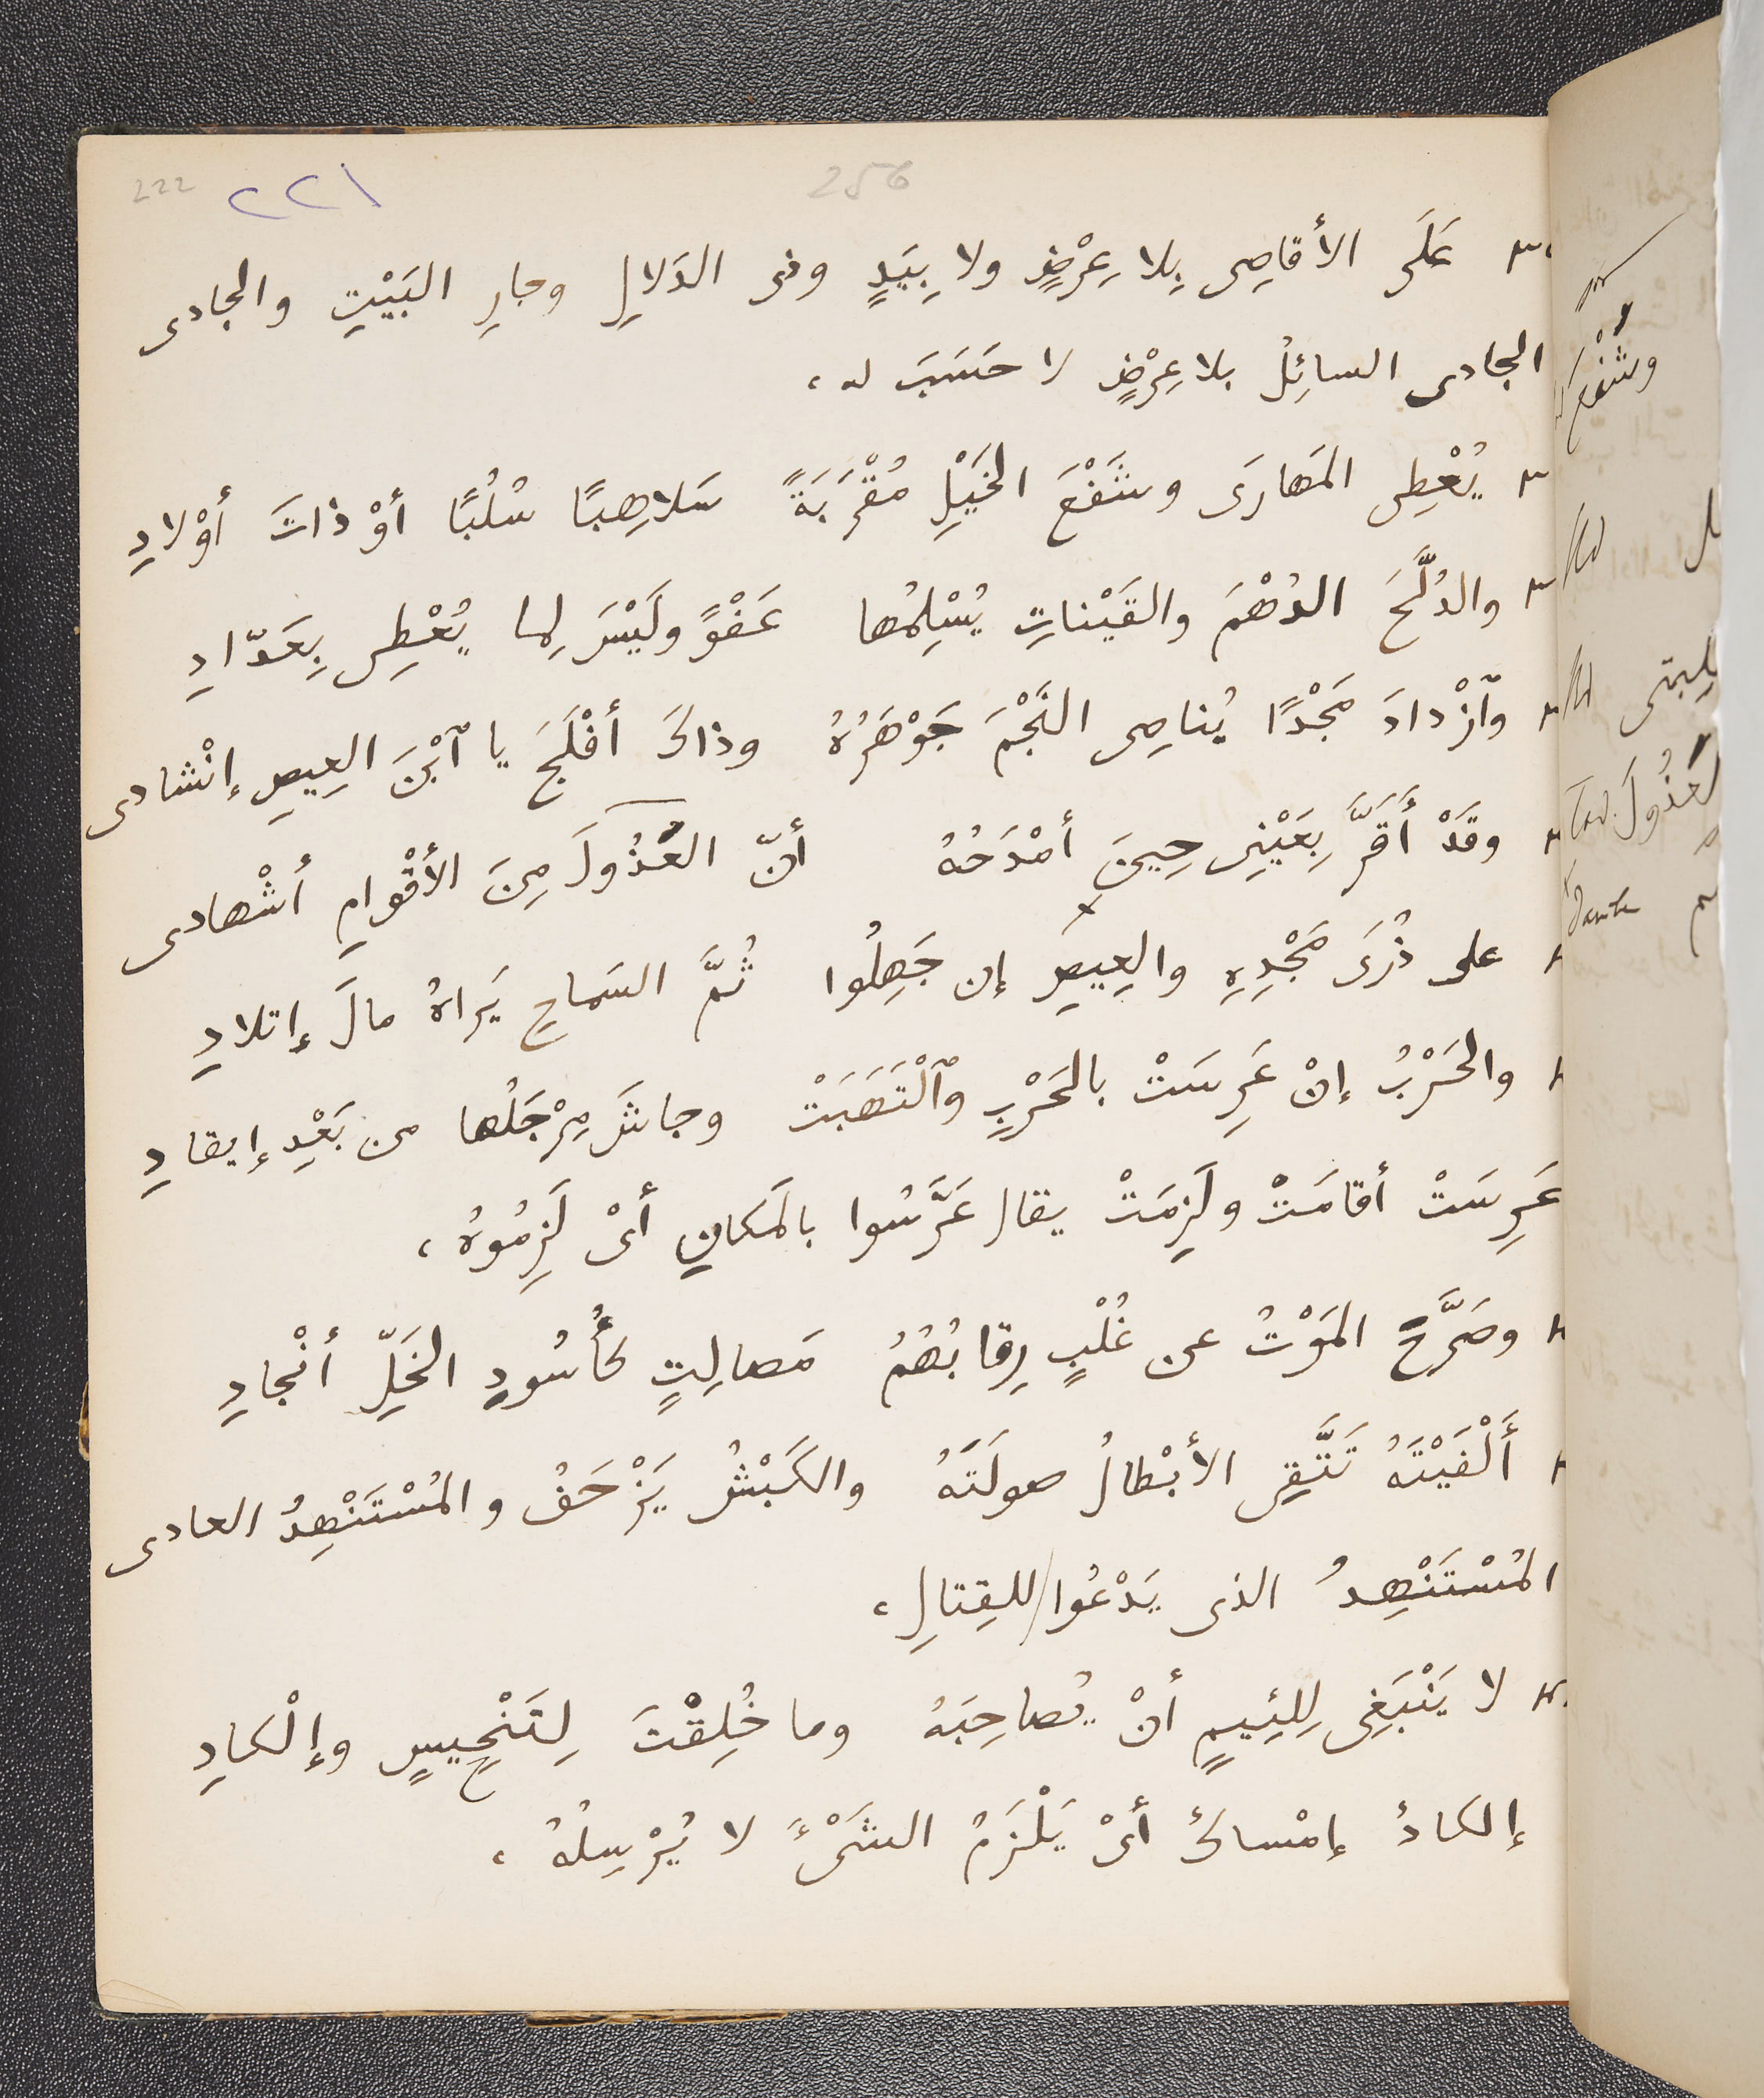 222 ٢٢١ 256
عَلَى الأقاصِى بِلا عِرْضٍ ولا بِيَدٍ وفى الدَلالِ وجارِ البَيْتِ والجادى
الجادى السائِلُ بلا عِرْضٍ لا حَسَبَ له ،
يُعْطِى المَهارَى وشَفْعَ الخَيْلِ مُقْرَبَةً سَلاهِبًا سُلُبًا أوْ ذاتَ أوْلادِ
والدُلَّحَ الدُهْمَ والقَيْناتِ يُسْلِمُها عَفْوًا ولَيْسَ لِما يُعْطِى بِعَدّادِ
وٱزْدادَ مَجْدًا يُناصِى النَجْمَ جَوْهَرُهُ وذاكَ أفْلَجَ يا ٱبْنَ العِيصِ إنْشادى
وقَدْ أَقَرَّ بِعَيْنِى حِينَ أمْدَحُهُ أنّ العُذُولَ مِنَ الأقْوامِ أشْهادى
على ذُرَى مَجْدِهِ والعِيصِ إن جَهِلُوا ثُمَّ السَماحِ يَراهُ مالَ إتلادِ
والحَرْبُ إنْ عَرِسَتْ بالحَرْبِ وٱلْتَهَبَتْ وجاشَ مِرْجَلُها من بَعْدِ إيقادِ
عَرِسَتْ أقامَتْ ولَزِمَتْ يقال عَرَّسُوا بالمَكانِ أىْ لَزِمُوهُ ،
وصَرَّحَ المَوْتُ عن غُلْبٍ رِقابُهُمُ مَصالِتٍ كأُسُودِ الخَلِّ أنْجادِ
أَلْفَيْتَهُ تَتَّقِى الأبْطالُ صولَتَهُ والكَبْشُ يَزْحَفُ والمُسْتَنْهِدُ العادى
المُسْتَنْهِدُ الذى يَدْعُوا للقِتالِ ،
لا يَنْبَغِى لِلئِيمٍ أنْ يُصاحِبَهُ وما خُلِقْتَ لِتَنْحِيسٍ وإلْكادِ
إلكادُ إمْساكُ أىْ يَلْزَمُ الشَىْءَ لا يُرْسِلُهُ ،
وشَفْع